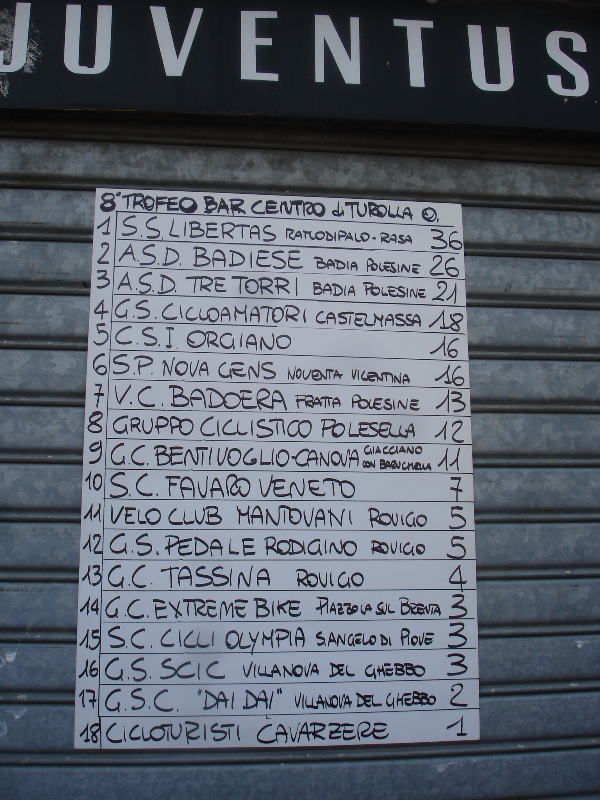 JUVENTUS
8° TROFEO BAR CENTRO di TUROLLA O.
1 S.S. LIBERTAS RATLODIPALO-RASA 36
2 A.S.D. BADIESE BADIA POLESINE 26
3 A.S.D. TRE TORRI BADIA POLESINE 21
4 G.S. CICLOAMATORI CASTELMASSA 18
5 C.S.I. ORGIANO 16
6 S.P. NOVA GENS NOVENTA VICENTINA 16
7 V.C. BADOERA FRATTA POLESINE 13
8 GRUPPO CICLISTICO POLESELLA 12
9 G.C. BENTIVOGLIO-CANOVA GIACCIANO CON BARUCHELLA 11
10 S.C. FAVARO VENETO 7
11 VELO CLUB MANTOVANI ROVIGO 5
12 G.S. PEDALE RODIGINO ROVIGO 5
13 G.C. TASSINA ROVIGO 4
14 G.C. EXTREME BIKE PIAZZOLA SUL BRENTA 3
15 S.C. CICLI OLYMPIA S.ANGELO DI PIOVE 3
16 G.S. SCIC VILLANOVA DEL GHEBBO 3
17 G.S.C. "DAI DAI" VILLANOVA DEL GHEBBO 2
18 CICLOTURISTI CAVARZERE 1